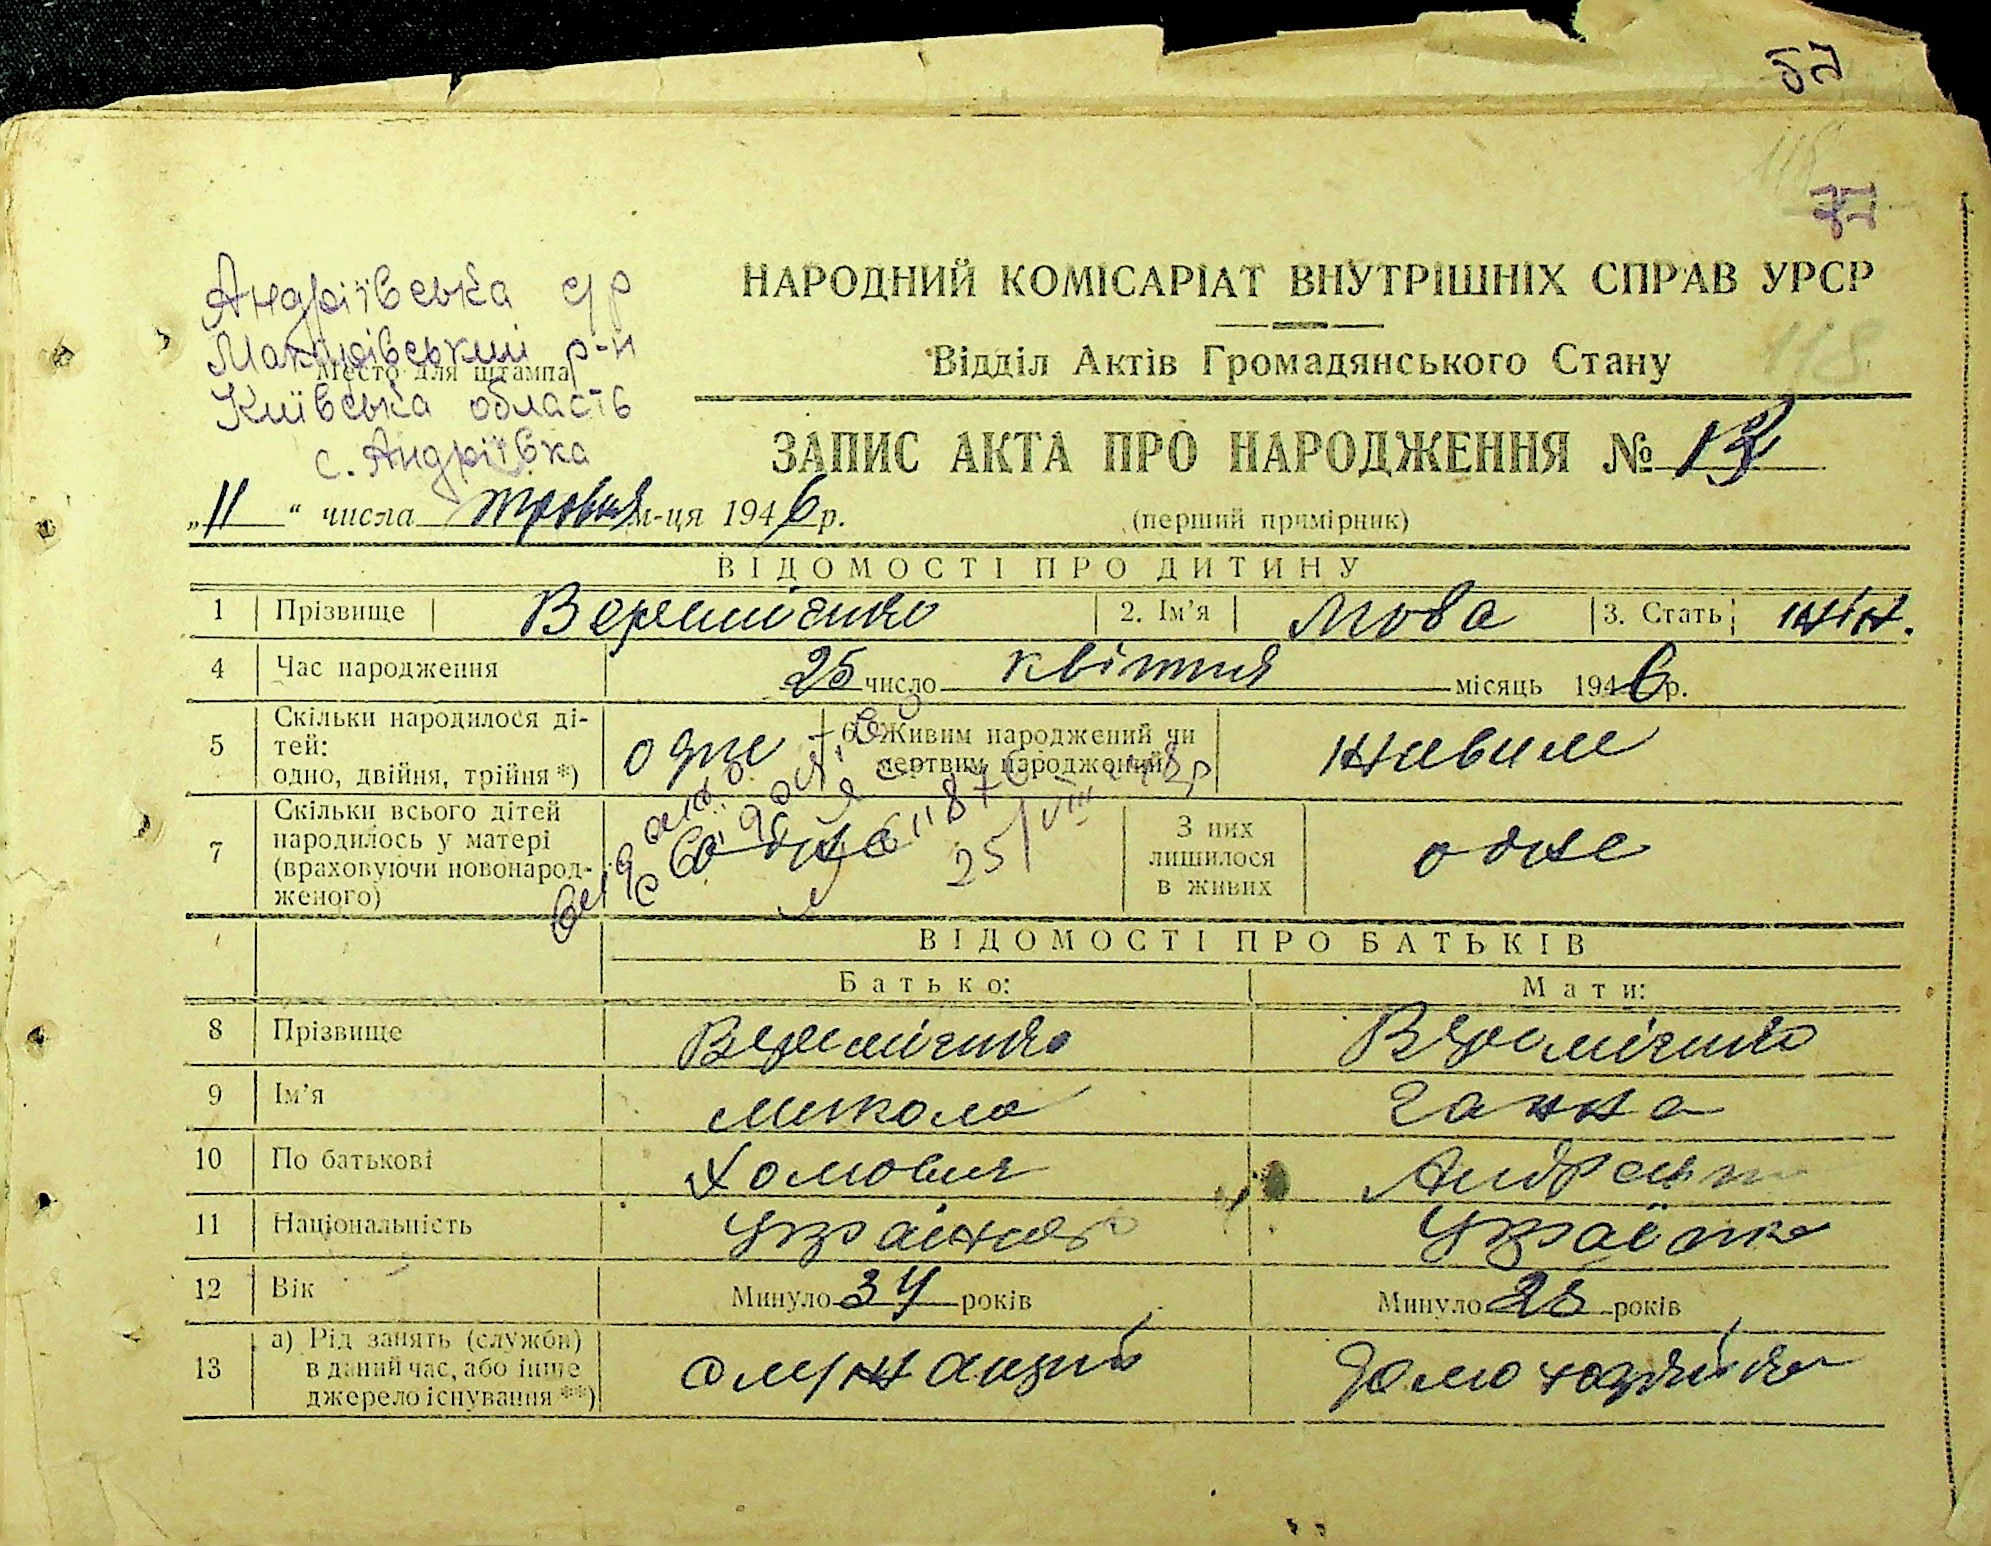 57
118
Андріївська с/р
Макарівський р-н
Место для штампа
Київська область
с. Андріївка
НАРОДНИЙ КОМІСАРІАТ ВНУТРІШНІХ СПРАВ УРСР
Відділ Актів Громадянського Стану
118
ЗАПИС АКТА ПРО НАРОДЖЕННЯ №
„11“ числа травня м-ця 1946 р.
(перший примірник)
ВІДОМОСТІ ПРО ДИТИНУ
1 Прізвище Веремієнко 2. Ім’я 3. Стать жін.
4 Час народження 25 число квітня місяць 1946 р.
5 Скільки народилося дітей: одно, двійня, трійня*) одне 6. Живим народжений чи мертвим народжений живим
7 Скільки всього дітей народилось у матері (враховуючи новонародженого) одне З них лишилося в живих одне
25/VIII
ВІДОМОСТІ ПРО БАТЬКІВ
Батько: Мати:
8 Прізвище Веремієнко Веремієнко
9 Ім’я Микола Ганна
10 По батькові Хомович
11 Національність Українець Українка
12 Вік Минуло 34 років Минуло 28 років
13 а) Рід занять (служби) в даний час, або інше джерело існування **) службовець домохазяйка